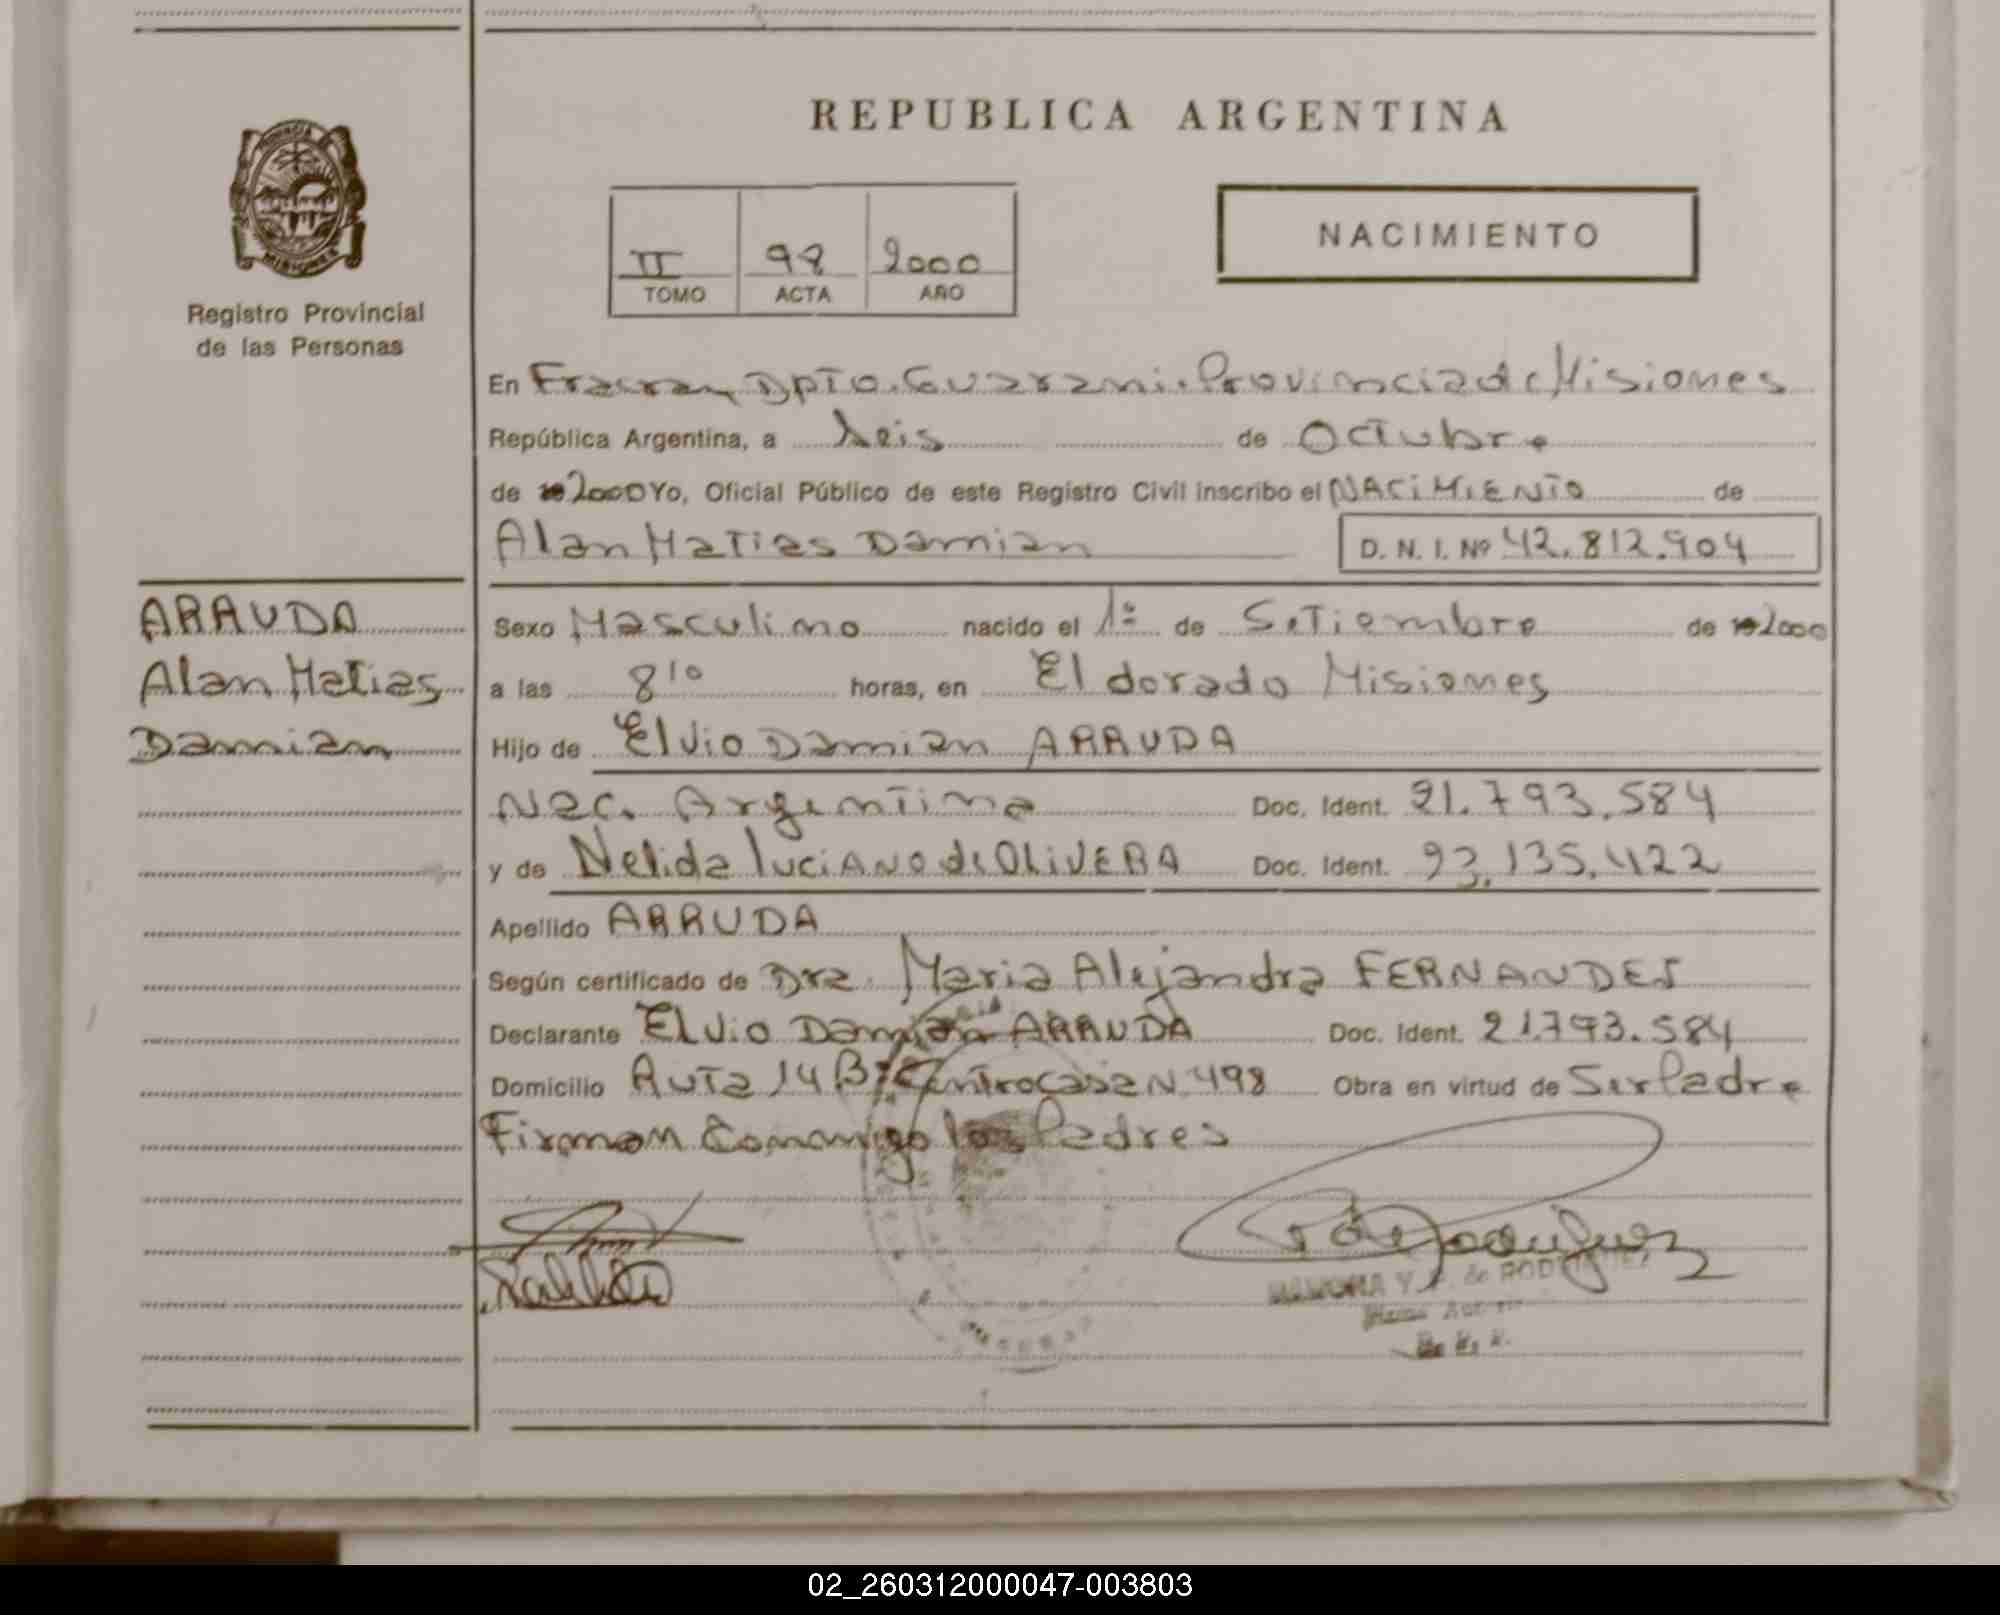 REPUBLICA ARGENTINA
PROVINCIA
MISIONES
Registro Provincial
de las Personas
II 98 2000
TOMO ACTA AÑO
NACIMIENTO
En Fracran Dpto. Guarani. Provincia de Misiones
República Argentina, a seis de Octubre
de 2000 Yo, Oficial Público de este Registro Civil inscribo el NACIMIENTO de
Alan Matias Damian D. N. I. Nº 42.812.904
ARRUDA
Alan Matias
Damian
Sexo Masculino nacido el 1º de Setiembre de 2000
a las 8 10 horas, en El dorado Misiones
Hijo de Elvio Damian ARRUDA
Nac. Argentina Doc. Ident. 21.793.584
y de Nelida luciANO de OLIVERA Doc. Ident. 93.135.422
Apellido ARRUDA
Según certificado de Dra. Maria Alejandra FERNANDES
Declarante Elvio Damian ARRUDA Doc. Ident. 21.793.584
Domicilio Ruta 14 Bº Centro casa N 498 Obra en virtud de Ser Padre
Firman Conmigo los Padres
de RODRIGUEZ
02_260312000047-003803